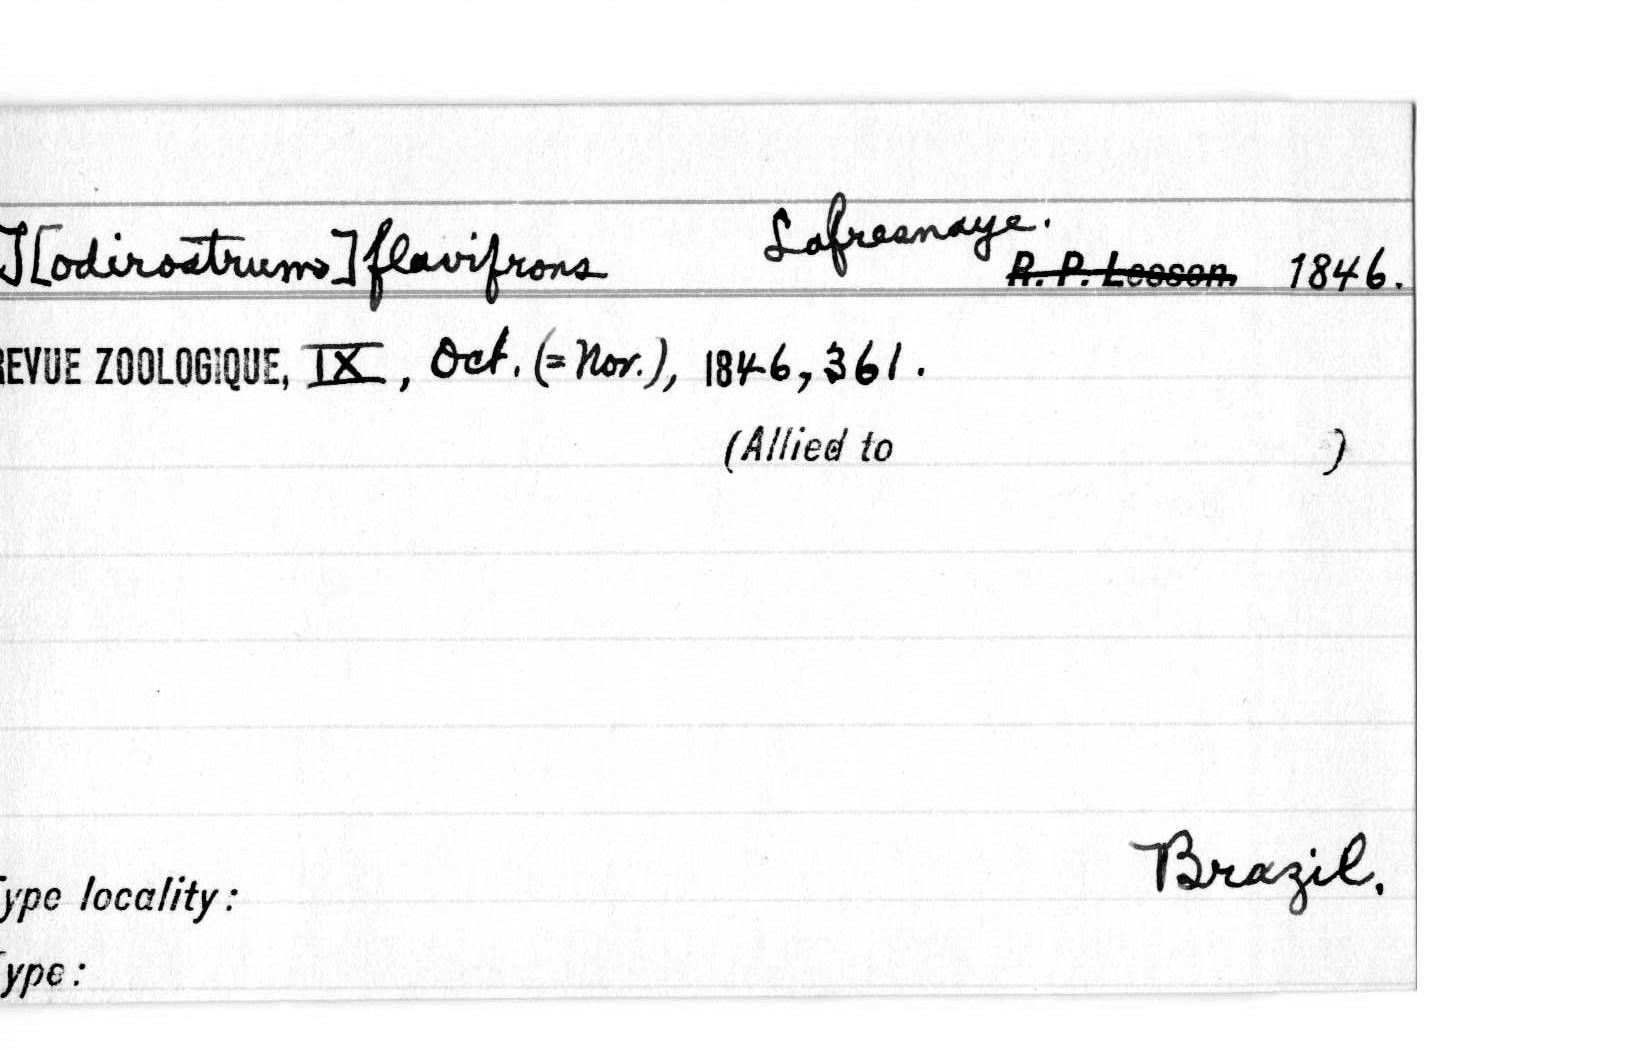 T[odirostrum] flavifrons Lafresnaye. ~~R. P. Lesson~~ 1846.
REVUE ZOOLOGIQUE, IX, Oct. (=Nov.), 1846, 361.
(Allied to )
Brazil.
Type locality:
Type: